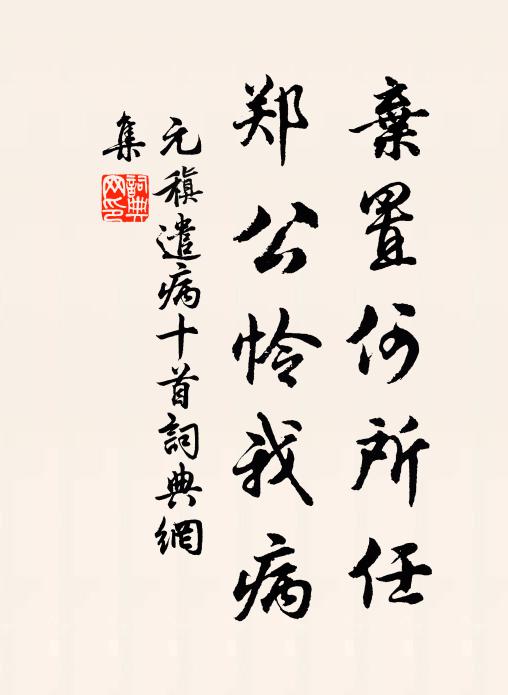 棄置何所任
郑公怜我病
元稹遣病十首詞典網
集
詞典
网印